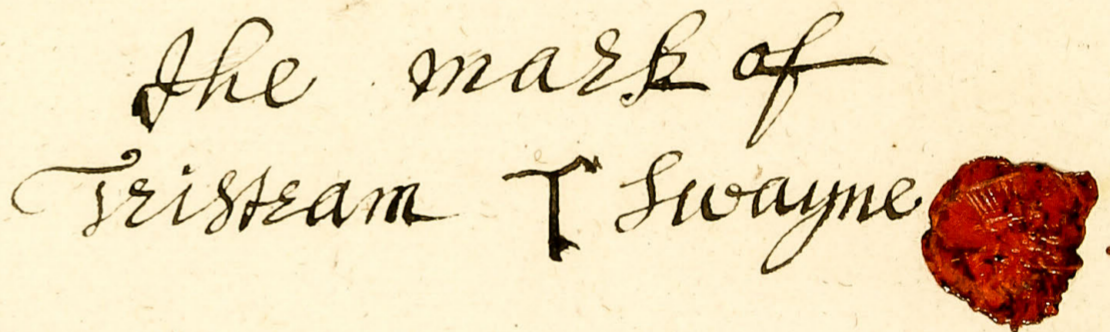 The mark of
Tristram T Swayne